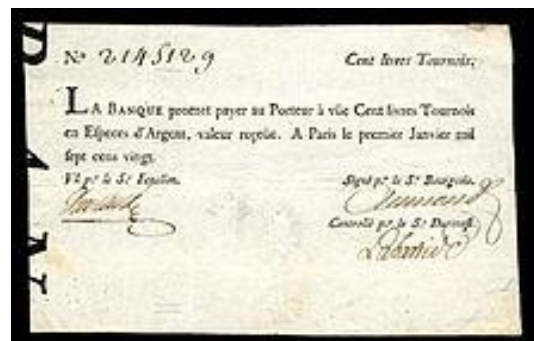 No 2145129 Cent livres Tournois.
LA BANQUE promet payer au Porteur à vüe Cent livres Tournois
en Especes d'Argent, valeur reçeüe. A Paris le premier Janvier mil
sept cens vingt.
Vû p.r le S.r Fenellon. Signé p.r le S.r Bourgeois.
Controllé p.r le S.r Durevest.